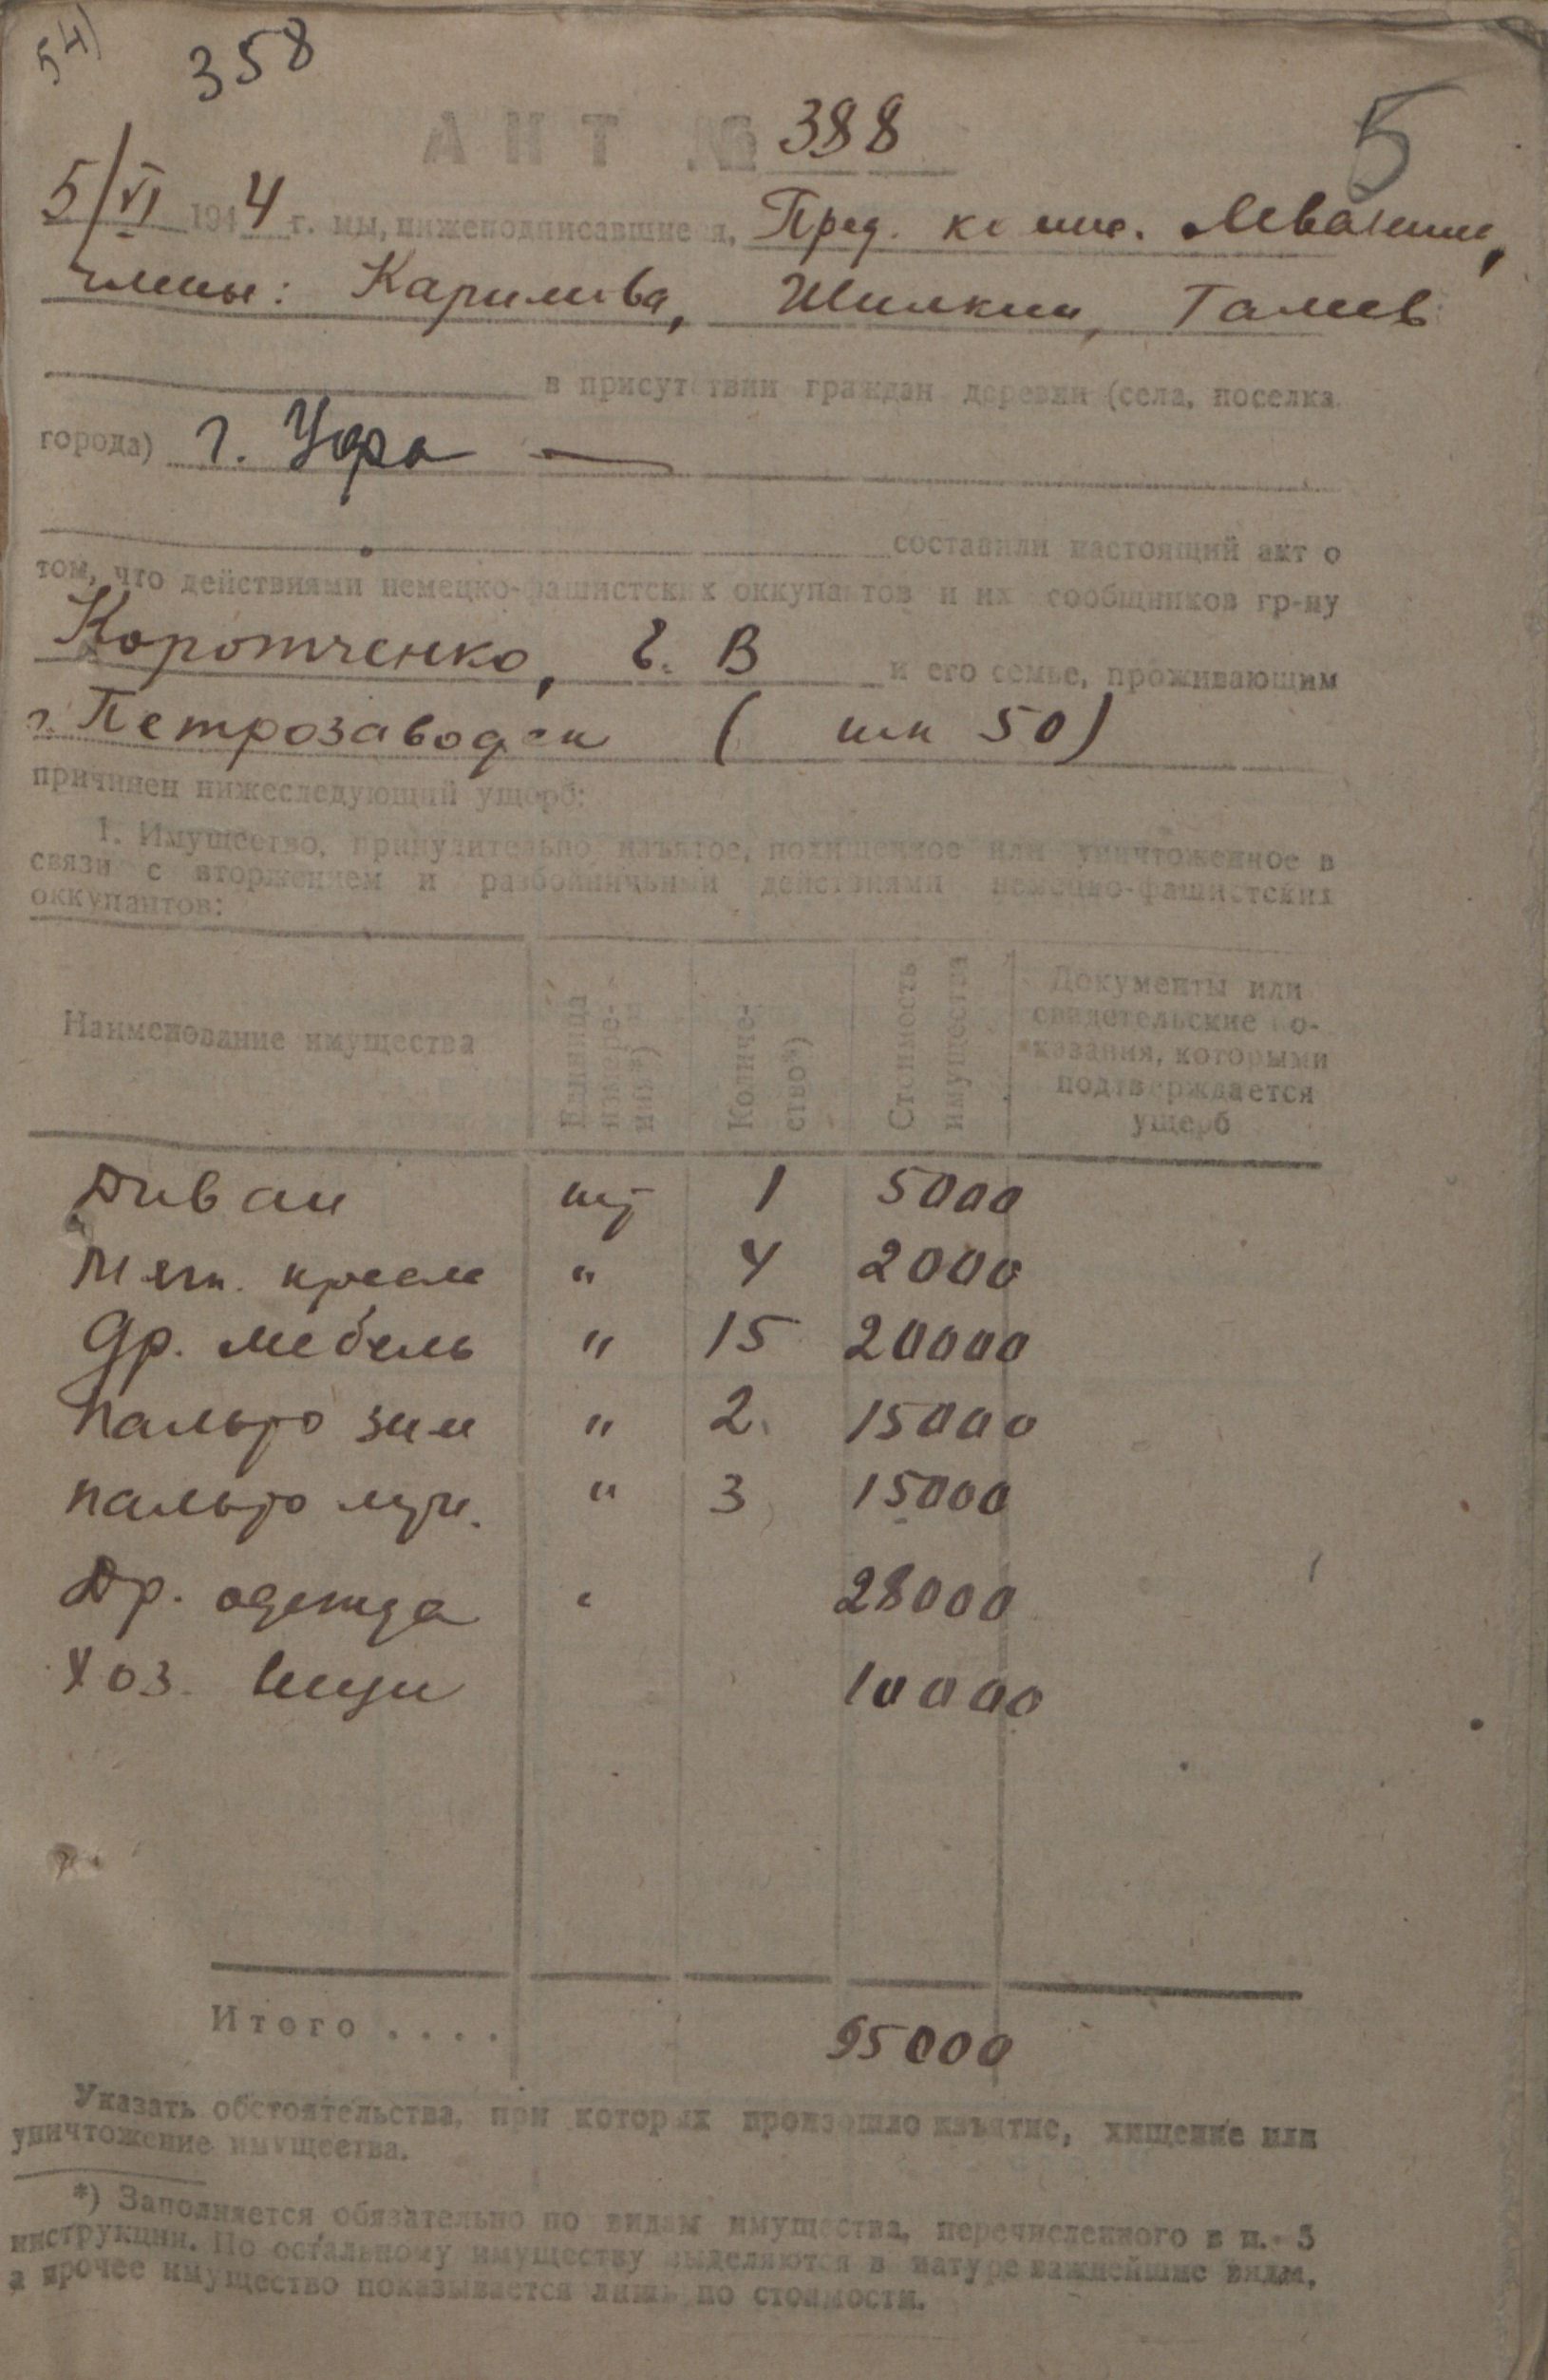 54)
358
АКТ № 388
5
5/VI 1944 г. мы, нижеподписавшиеся, Пред. комис.
члены: Каримова, Шилкин, Галиев
в присутствии граждан деревни (села, поселка
города) г. Уфа —
составили настоящий акт о
том, что действиями немецко-фашистских оккупантов и их сообщников гр-ну
Коротченко, Г. В и его семье, проживающим
г. Петрозаводск ( шк 50)
причинен нижеследующий ущерб:
1. Имущество, принудительно изъятое, похищенное или уничтоженное в
связи с вторжением и разбойничьими действиями немецко-фашистских
оккупантов:
Наименование имущества
Единица измере-ния*)
Количе-ство*)
Стоимость имущества
Документы или
свидетельские по-
казания, которыми
подтверждается
ущерб
Диван шт 1 5000
Мягк. кресла " 4 2000
Др. мебель " 15 20000
Пальто зим " 2 15000
пальто муж. " 3 15000
Др. одежда " 28000
Хоз. вещи 10000
Итого .... 95000
Указать обстоятельства, при которых произошло изъятие, хищение или
уничтожение имущества.
*) Заполняется обязательно по видам имущества, перечисленного в п. 5
инструкции. По остальному имуществу выделяются в натуре важнейшие виды,
а прочее имущество показывается лишь по стоимости.